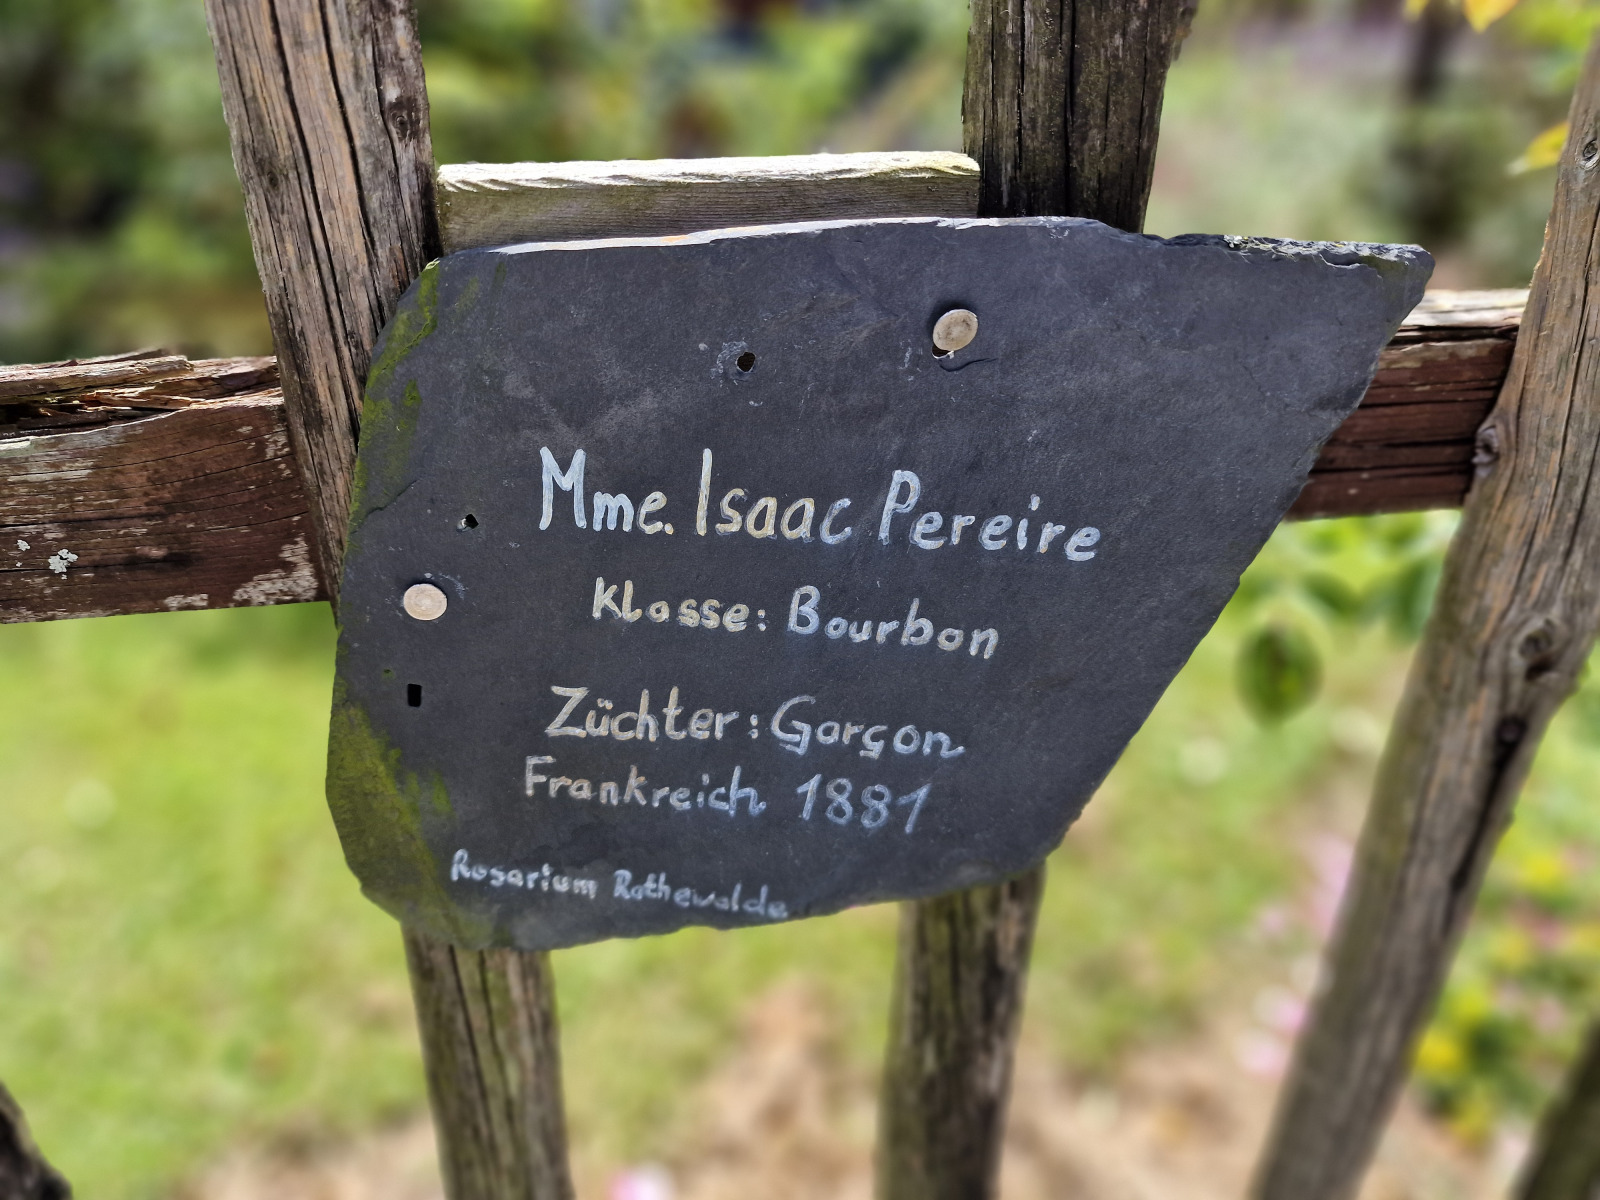 Mme. Isaac Pereire
Klasse: Bourbon
Züchter: Garçon
Frankreich 1881
Rosarium Rathewalde